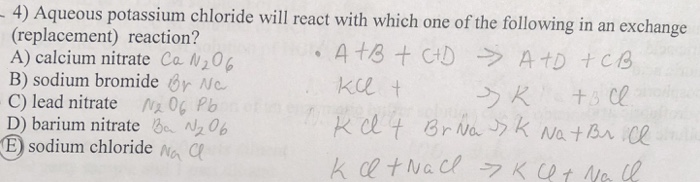 - 4) Aqueous potassium chloride will react with which one of the following in an exchange
(replacement) reaction?
A) calcium nitrate Ca N2O6
B) sodium bromide Br Na
C) lead nitrate N2O6 Pb
D) barium nitrate Ba N2O6
E) sodium chloride Na Cl
• A+B + C+D → A+D + CB
KCl + → K + Cl
KCl + BrNa → K Na + Br Cl
K Cl + NaCl → K Cl + Na Cl